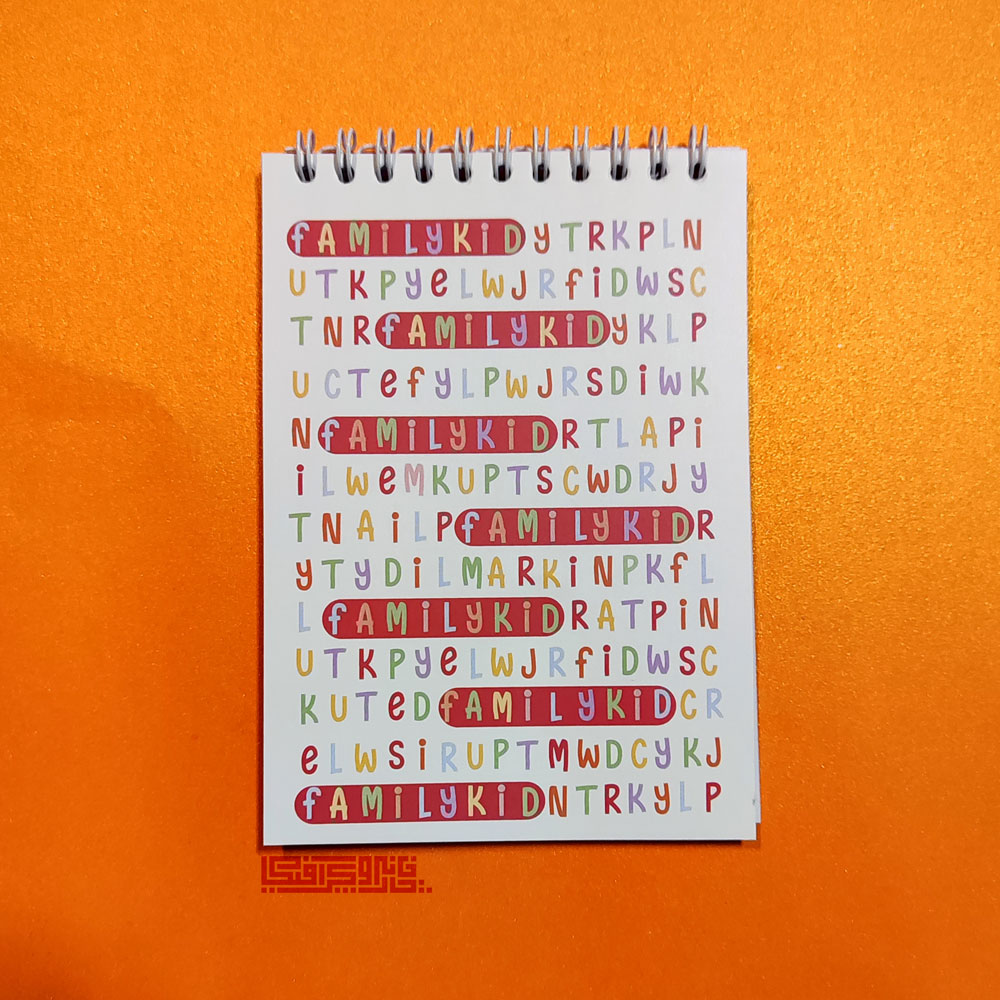 fAMiLyKiDyTRKPLN
UTKPyeLWJRfiDWSC
TNRfAMiLyKiDyKLP
UCTefyLPWJRSDiWK
NfAMiLyKiDRTLAPi
iLWeMKUPTSCWDRJy
TNAiLPfAMiLyKiDR
yTyDiLMARKiNPKfL
LfAMiLyKiDRATPiN
UTKPyeLWJRfiDWSC
KUTeDfAMiLyKiDCR
eLWSiRUPTMWDCyKJ
fAMiLyKiDNTRKyLP